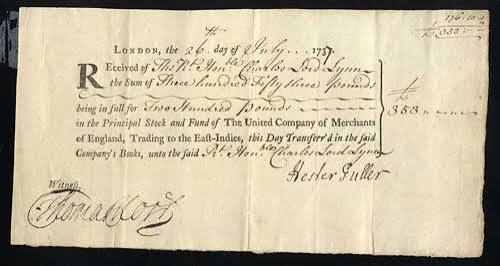 176.10
353
th
LONDON, the 26. day of July 1737.
RECeived of The Rt. Honble Charles Lord Lynn
the Sum of Three hundred Fifty three Pounds
being in full for Two Hundred Pounds
353
in the Principal Stock and Fund of The United Company of Merchants
of England, Trading to the East-Indies, this Day Transferr'd in the said
Company's Books, unto the said Rt. Honble Charles Lord Lynn
Hester Fuller
Witness,
Thomas